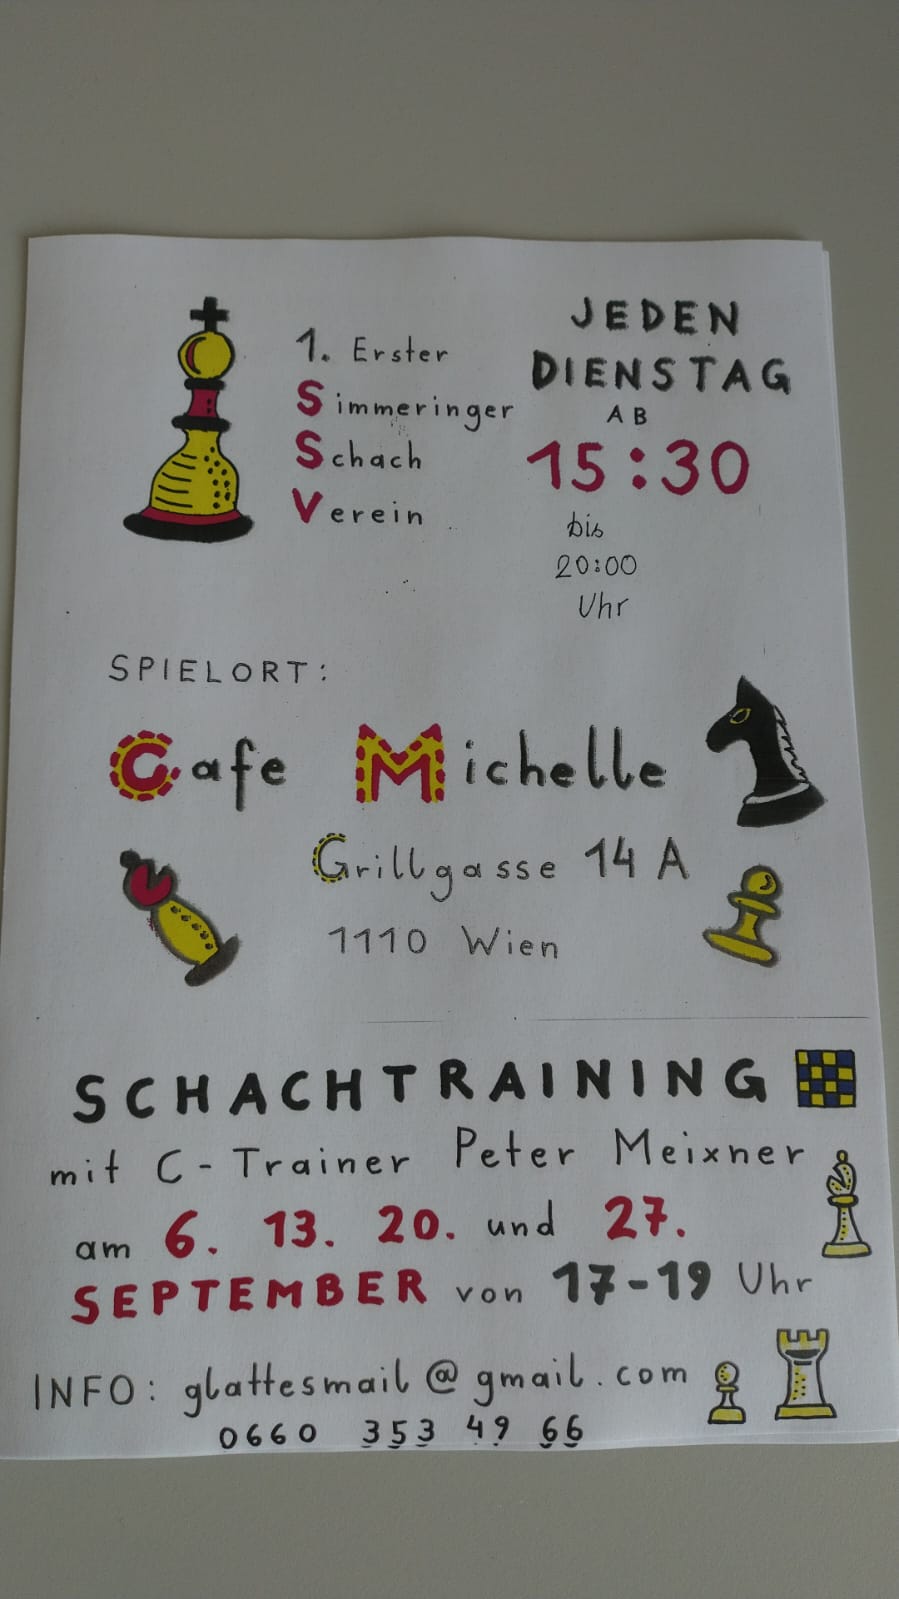 1. Erster
Simmeringer
Schach
Verein
JEDEN
DIENSTAG
AB
15:30
bis
20:00
Uhr
SPIELORT:
Cafe Michelle
Grillgasse 14 A
1110 Wien
SCHACHTRAINING
mit C-Trainer Peter Meixner
am 6. 13. 20. und 27.
SEPTEMBER von 17-19 Uhr
INFO: glattesmail@gmail.com
0660 353 49 66